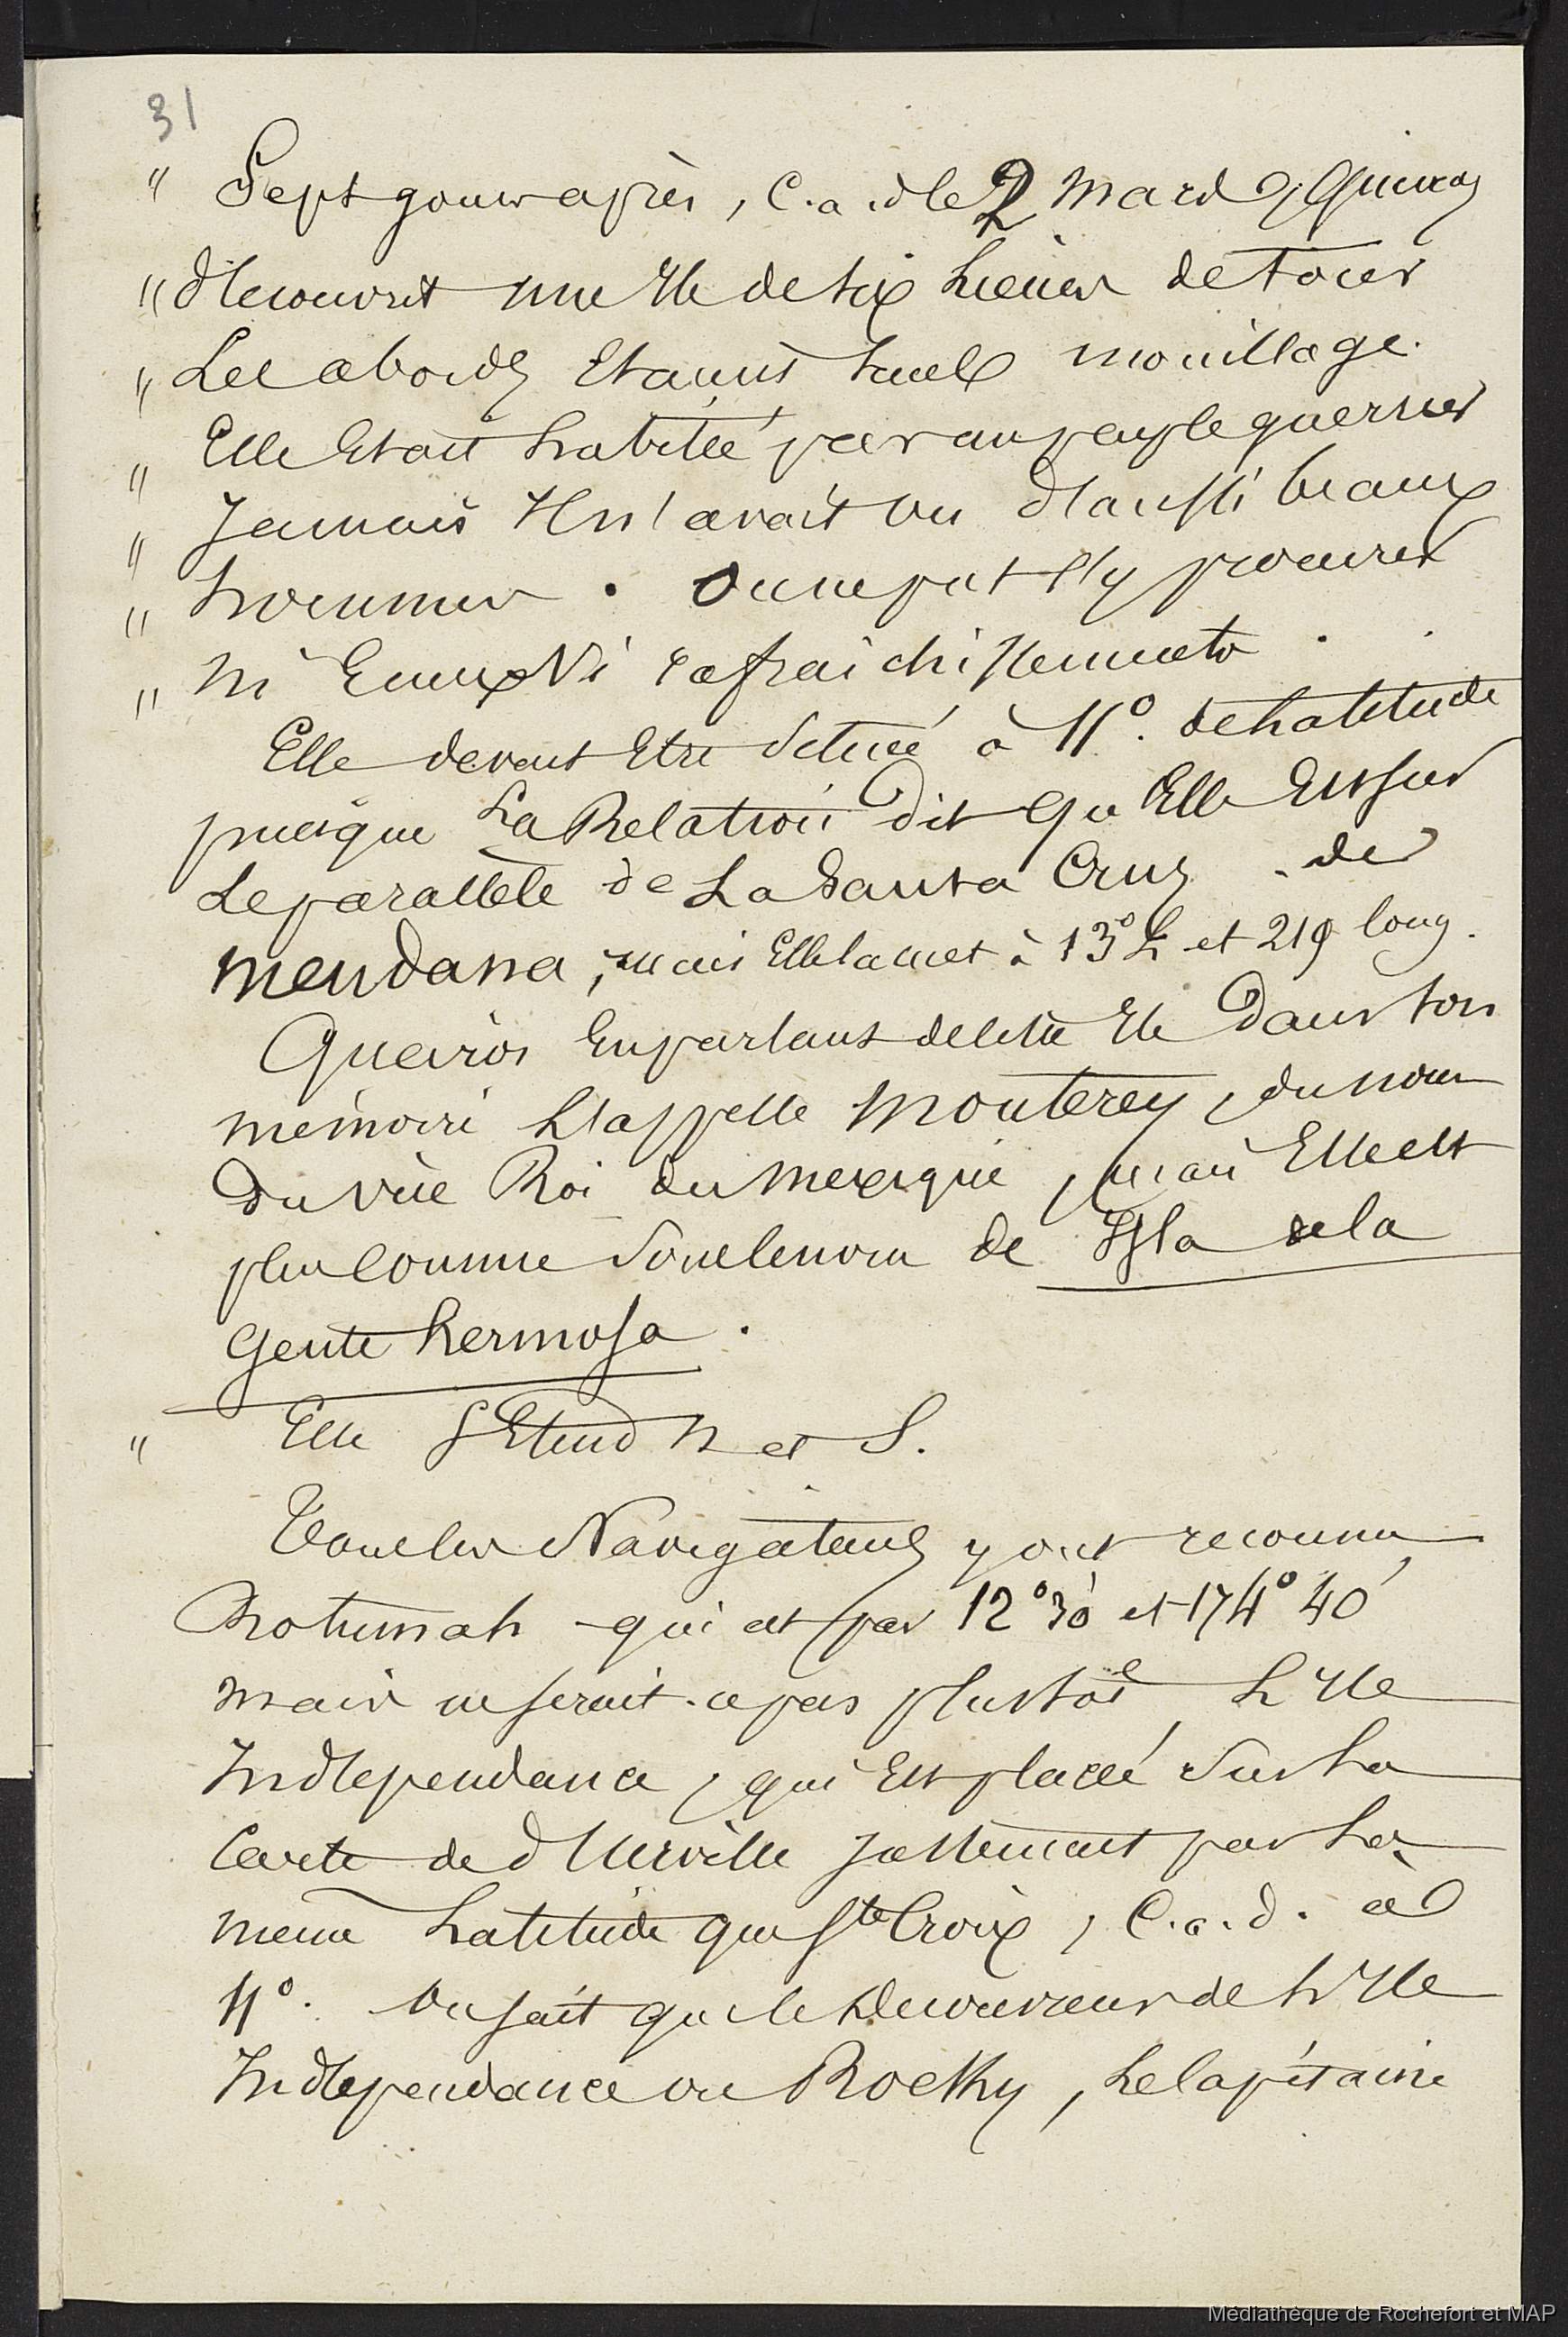 31
" Sept jours après, C.a.d le 2 Mars, Queiros
" découvrit une Ile de six Lieues de tour
" Les abords Etaient sans mouillage.
" Elle Etait habitée par un peuple guerrier
" Jamais Il n'avait vu d'aussi beaux
" hommes . On ne put s'y procurer
" ni Eaux Ni rafraichissements .
Elle devait Etre située à 11°. de Latitude
puisque La Relation dit qu'Elle Est sur
Le parallèle de La Santa Cruz de
Mendana, mais Elle la met à 13° L et 219 long.
Queiros En parlant de cette Ile Dans son
mémoire L'appelle Monterey, du nom
Du vice Roi du Mexique, mais Elle est
plus connue sous le nom de Isla de la
Gente hermosa .
" Elle s'Etend N et S.
Tous les Navigateurs y ont reconnu
Rotumah qui est par 12°30' et 174° 40'
mais ne serait-ce pas plustôt L'Ile
Indépendance, qui Est placée sur La
Carte de d'Urville justement par La
même Latitude que Ste Croix, C.a.d. à
11°. On sait que le Découvreur de L'Ile
Indépendance ou Rocky, Le Capitaine
Médiathèque de Rochefort et MAP